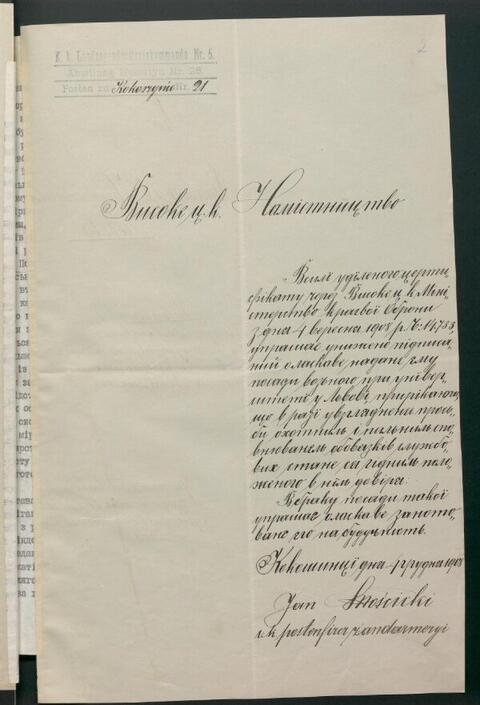 2
K. k. Landesgendarmeriekommando Nr. 5.
Abteilung Nr. 28.
Posten zu Kokoszyńce Nr. 21
Високе ц. к. Намістництво
В силі уділеного церти-
фікату через Високе ц. к. Міні-
стерство краєвої Оборони
з дня 4 вересня 1908 р. Ч: 14,783,
упрашає унижено підписа-
ний о ласкаве надане єму
посади возного при універ-
ситеті у Львові, прирікаючи,
що в разі увзгляднення прось-
би охотним і пильним спо-
внюванєм обовязків службо-
вих стане ся гідним поло-
женого в нїм довіря.
В браку посади такої
упрашає о ласкаве заното-
ванє єго на будучність.
Кокошинцї дня 4 грудня 1908
Jan
c. k. postenfirer żandarmeryi